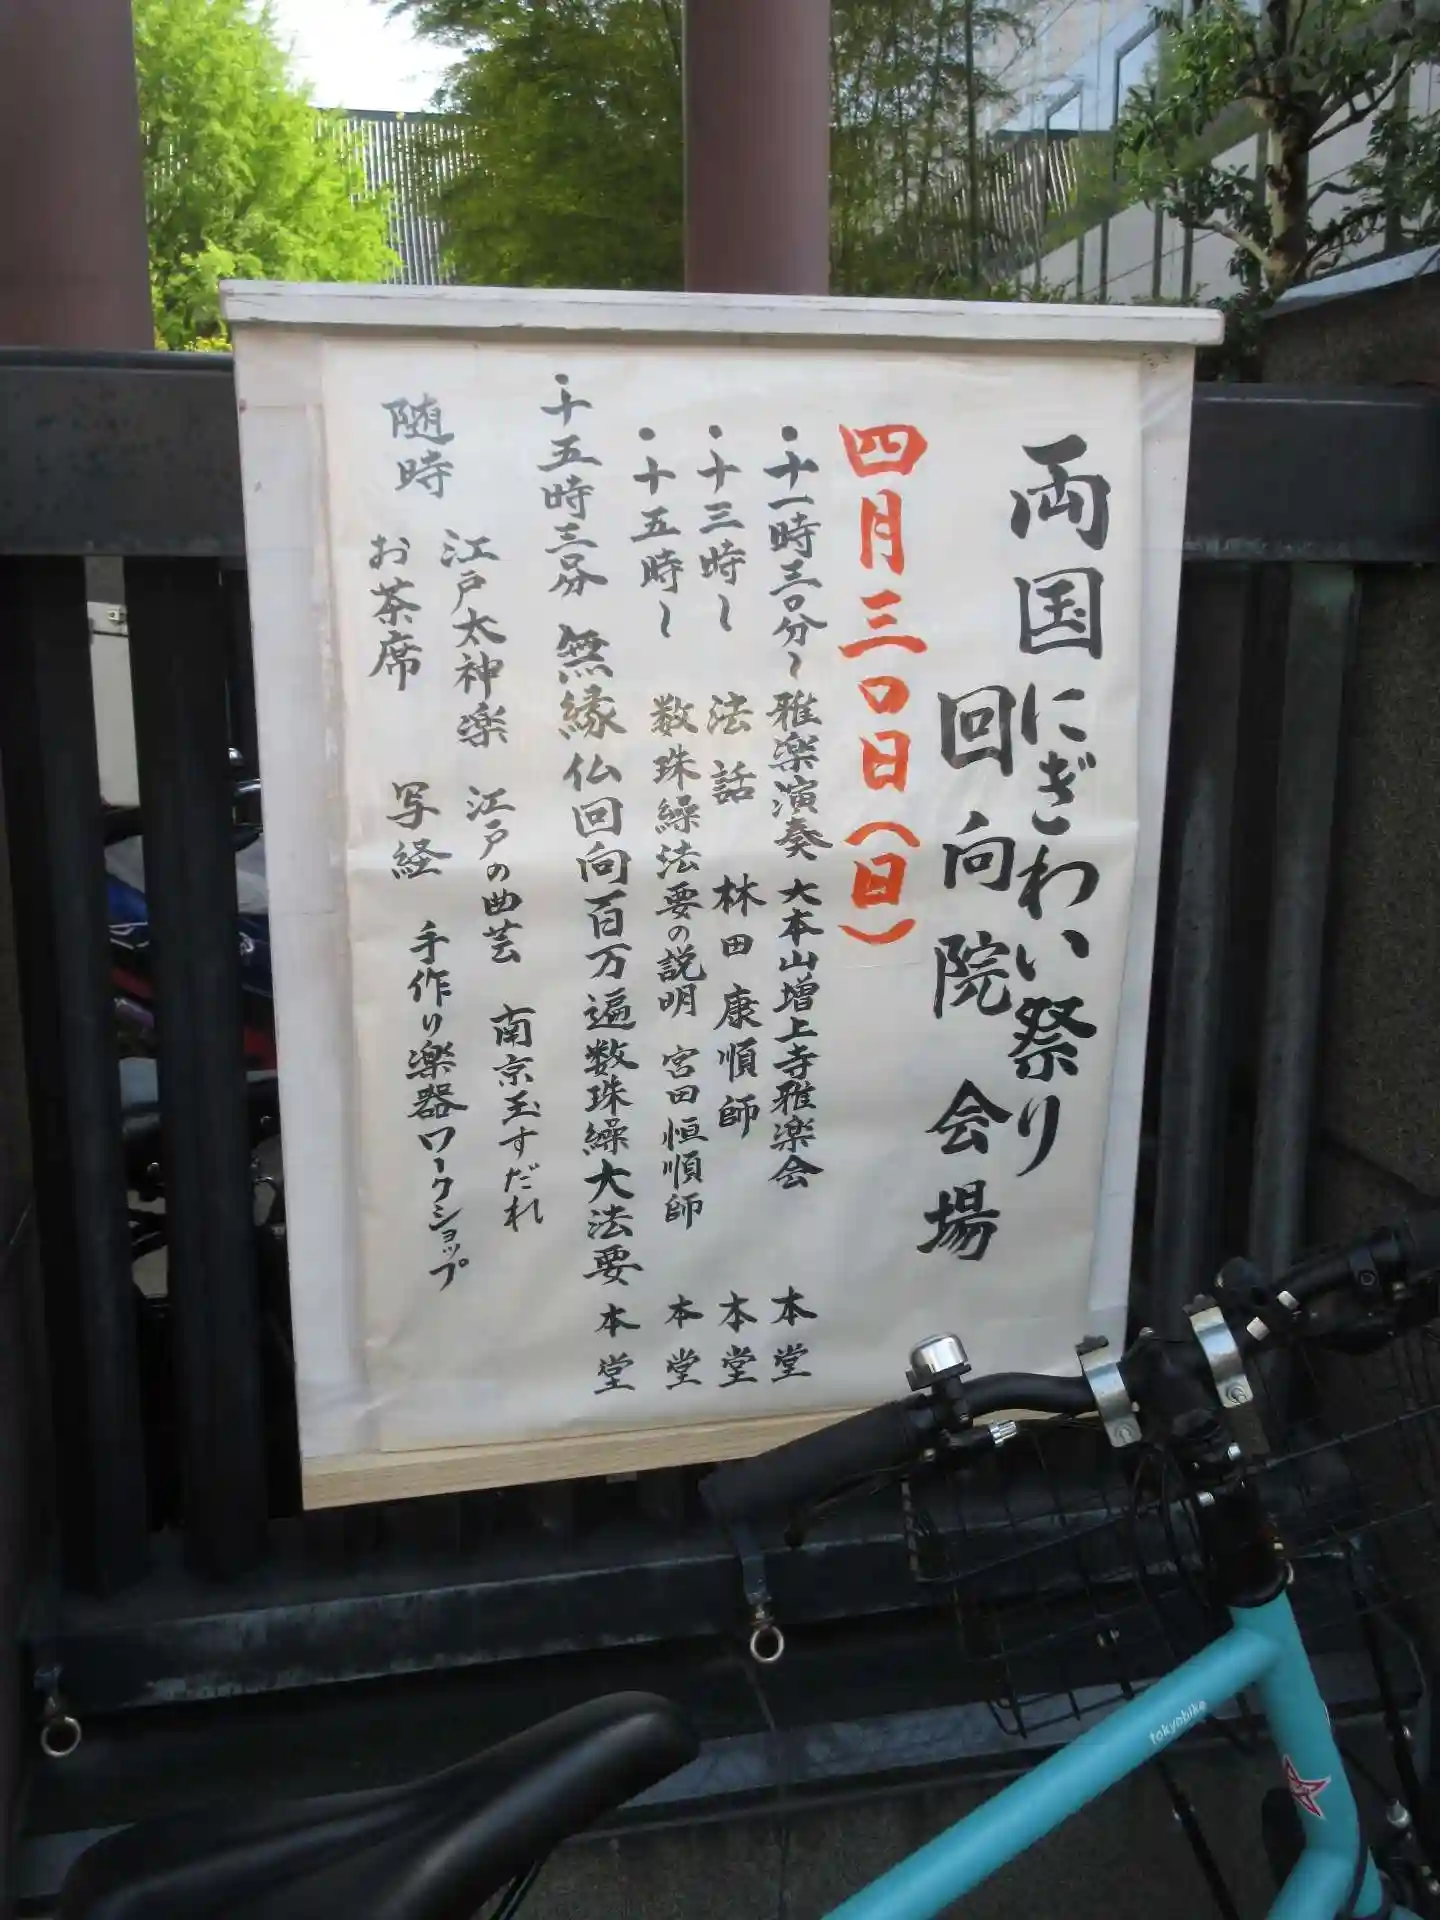 両国にぎわい祭り
回向院 会場
四月三〇日(日)
・十一時三〇分～ 雅楽演奏 大本山増上寺雅楽会 本堂
・十三時～ 法話 林田康順師 本堂
・十五時～ 数珠繰法要の説明 宮田恒順師 本堂
・十五時三〇分 無縁仏回向百万遍数珠繰大法要 本堂
随時 江戸太神楽 江戸の曲芸 南京玉すだれ
お茶席 写経 手作り楽器ワークショップ
tokyobike